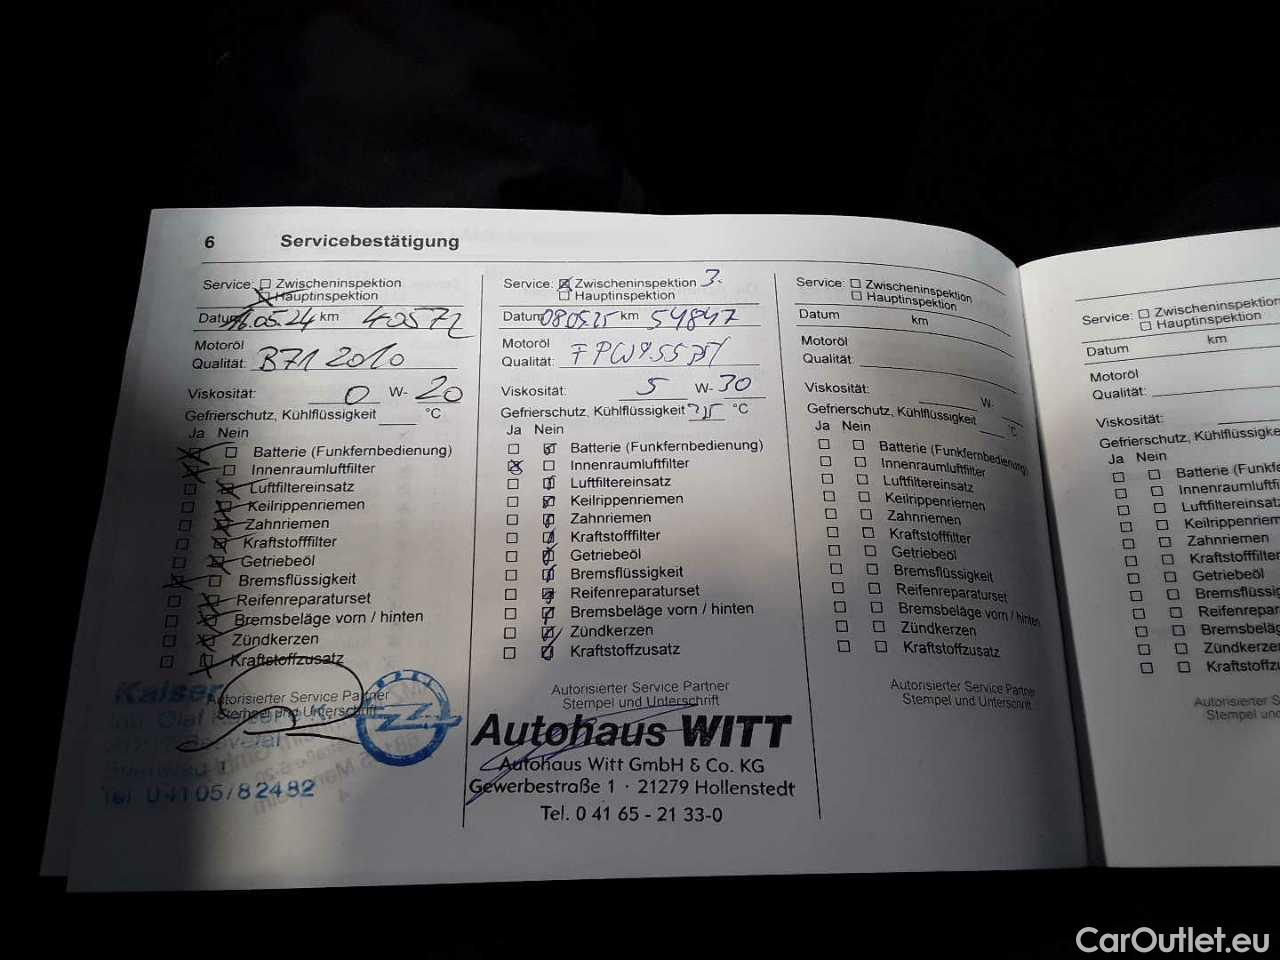 6 Servicebestätigung
Service: Zwischeninspektion
Hauptinspektion
Datum 16.05.24 km 40572
Motoröl
Qualität: B71 2010
Viskosität: 0 W- 20
Gefrierschutz, Kühlflüssigkeit °C
Ja Nein
Batterie (Funkfernbedienung)
Innenraumluftfilter
Luftfiltereinsatz
Keilrippenriemen
Zahnriemen
Kraftstofffilter
Getriebeöl
Bremsflüssigkeit
Reifenreparaturset
Bremsbeläge vorn / hinten
Zündkerzen
Kraftstoffzusatz
Autorisierter Service Partner
Stempel und Unterschrift
Kaiser
Tel 04105/82482
Service: Zwischeninspektion 3.
Hauptinspektion
Datum 08.05.25 km 54847
Motoröl
Qualität:
Viskosität: 5 W- 30
Gefrierschutz, Kühlflüssigkeit °C
Ja Nein
Batterie (Funkfernbedienung)
Innenraumluftfilter
Luftfiltereinsatz
Keilrippenriemen
Zahnriemen
Kraftstofffilter
Getriebeöl
Bremsflüssigkeit
Reifenreparaturset
Bremsbeläge vorn / hinten
Zündkerzen
Kraftstoffzusatz
Autorisierter Service Partner
Stempel und Unterschrift
Autohaus WITT
Autohaus Witt GmbH & Co. KG
Gewerbestraße 1 · 21279 Hollenstedt
Tel. 0 41 65 - 21 33-0
Service: Zwischeninspektion
Hauptinspektion
Datum km
Motoröl
Qualität:
Viskosität: W-
Gefrierschutz, Kühlflüssigkeit °C
Ja Nein
Batterie (Funkfernbedienung)
Innenraumluftfilter
Luftfiltereinsatz
Keilrippenriemen
Zahnriemen
Kraftstofffilter
Getriebeöl
Bremsflüssigkeit
Reifenreparaturset
Bremsbeläge vorn / hinten
Zündkerzen
Kraftstoffzusatz
Autorisierter Service Partner
Stempel und Unterschrift
Service: Zwischeninspektion
Hauptinspektion
Datum km
Motoröl
Qualität:
Viskosität:
Gefrierschutz, Kühlflüssigke
Ja Nein
Batterie (Funkfe
Innenraumluftfi
Luftfiltereinsatz
Keilrippenriem
Zahnriemen
Kraftstofffilter
Getriebeöl
Bremsflüssig
Reifenrepara
Bremsbeläg
Zündkerzen
Kraftstoffzu
Autorisierter S
Stempel und
CarOutlet.eu